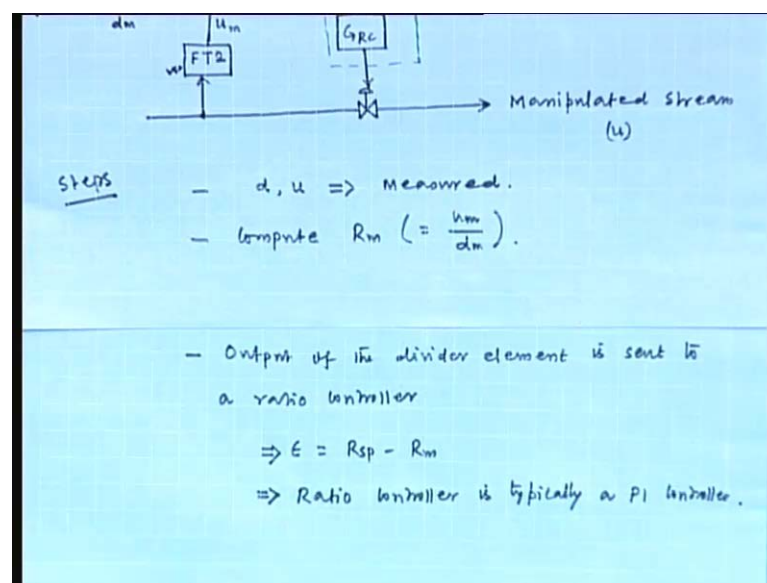 dm um GRC
FT2
Manipulated stream
(u)
Steps - d, u => Measured.
- Compute Rm (= um/dm).
- Output of the divider element is sent to
a ratio controller
=> ϵ = Rsp - Rm
=> Ratio controller is typically a PI controller.